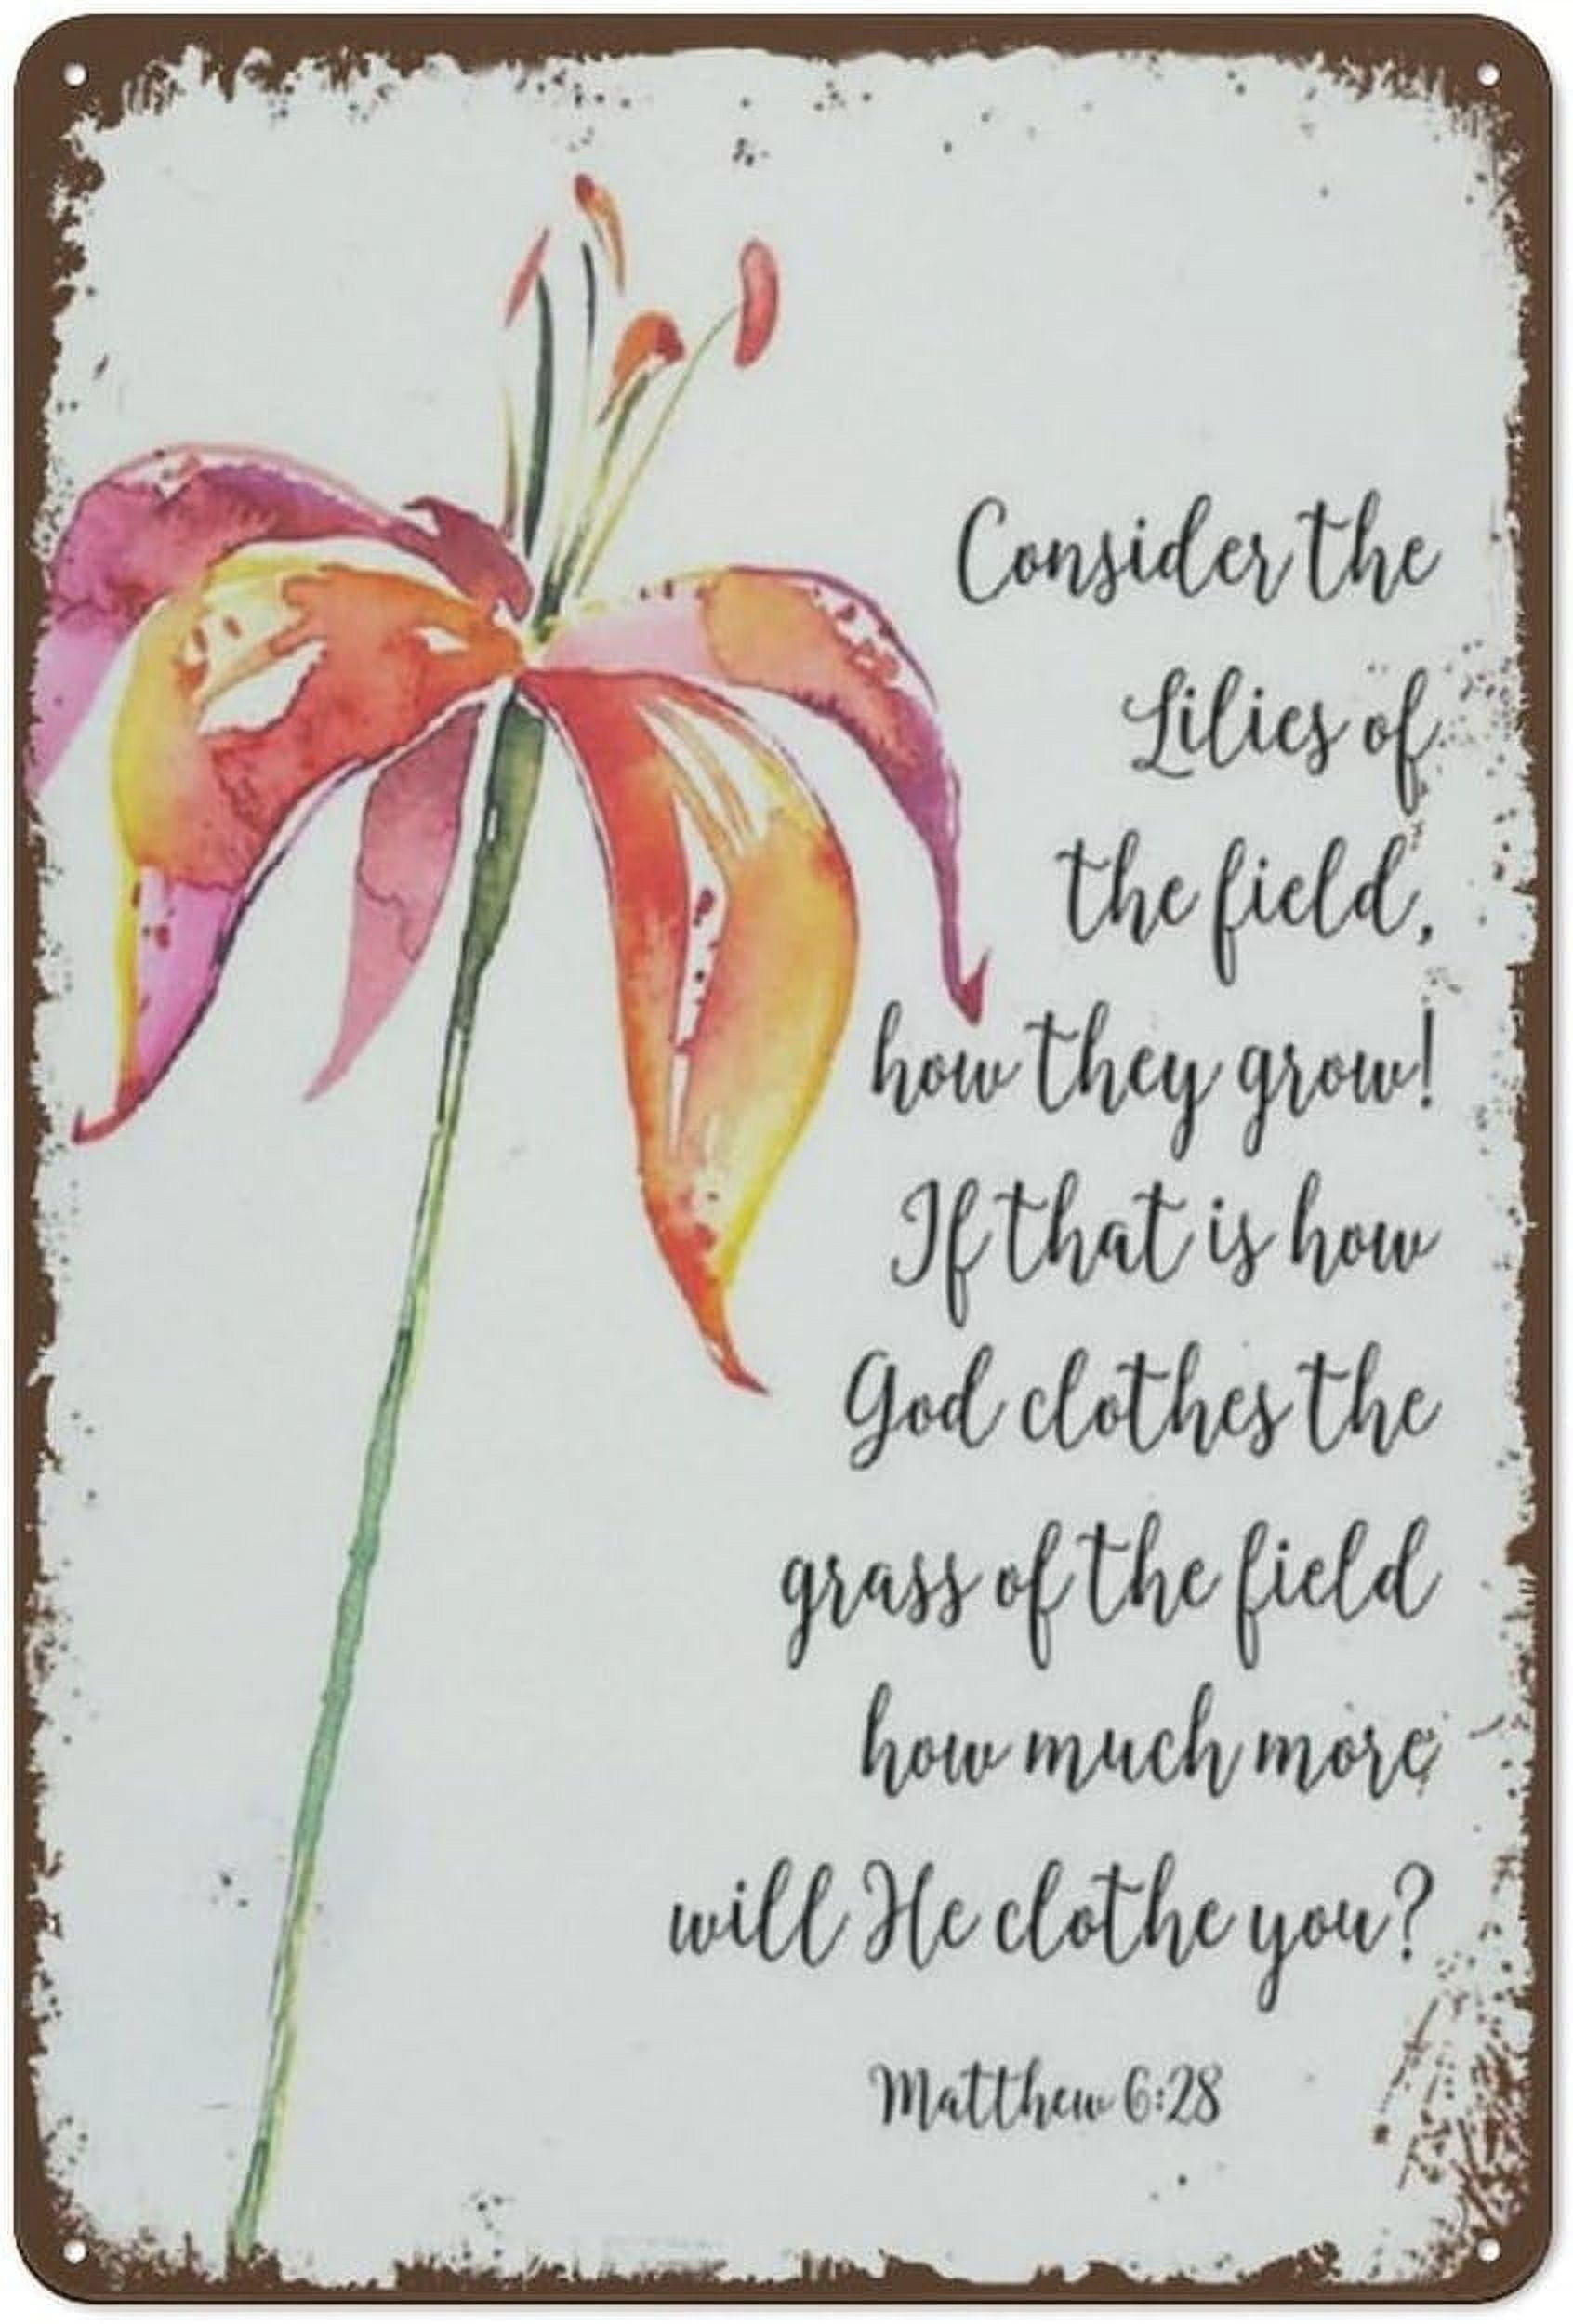 Consider the
Lilies of
the field,
how they grow!
If that is how
God clothes the
grass of the field
how much more
will He clothe you?
Matthew 6:28